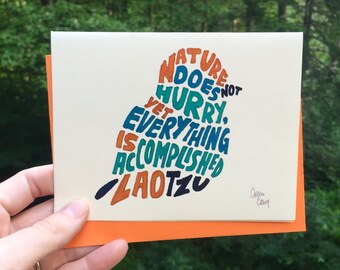 NATURE
DOES NOT
HURRY,
YET
EVERYTHING
IS
ACCOMPLISHED
LAOTZU